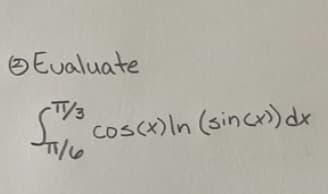 ② Evaluate
∫_{π/6}^{π/3} cos(x) ln (sin(x)) dx